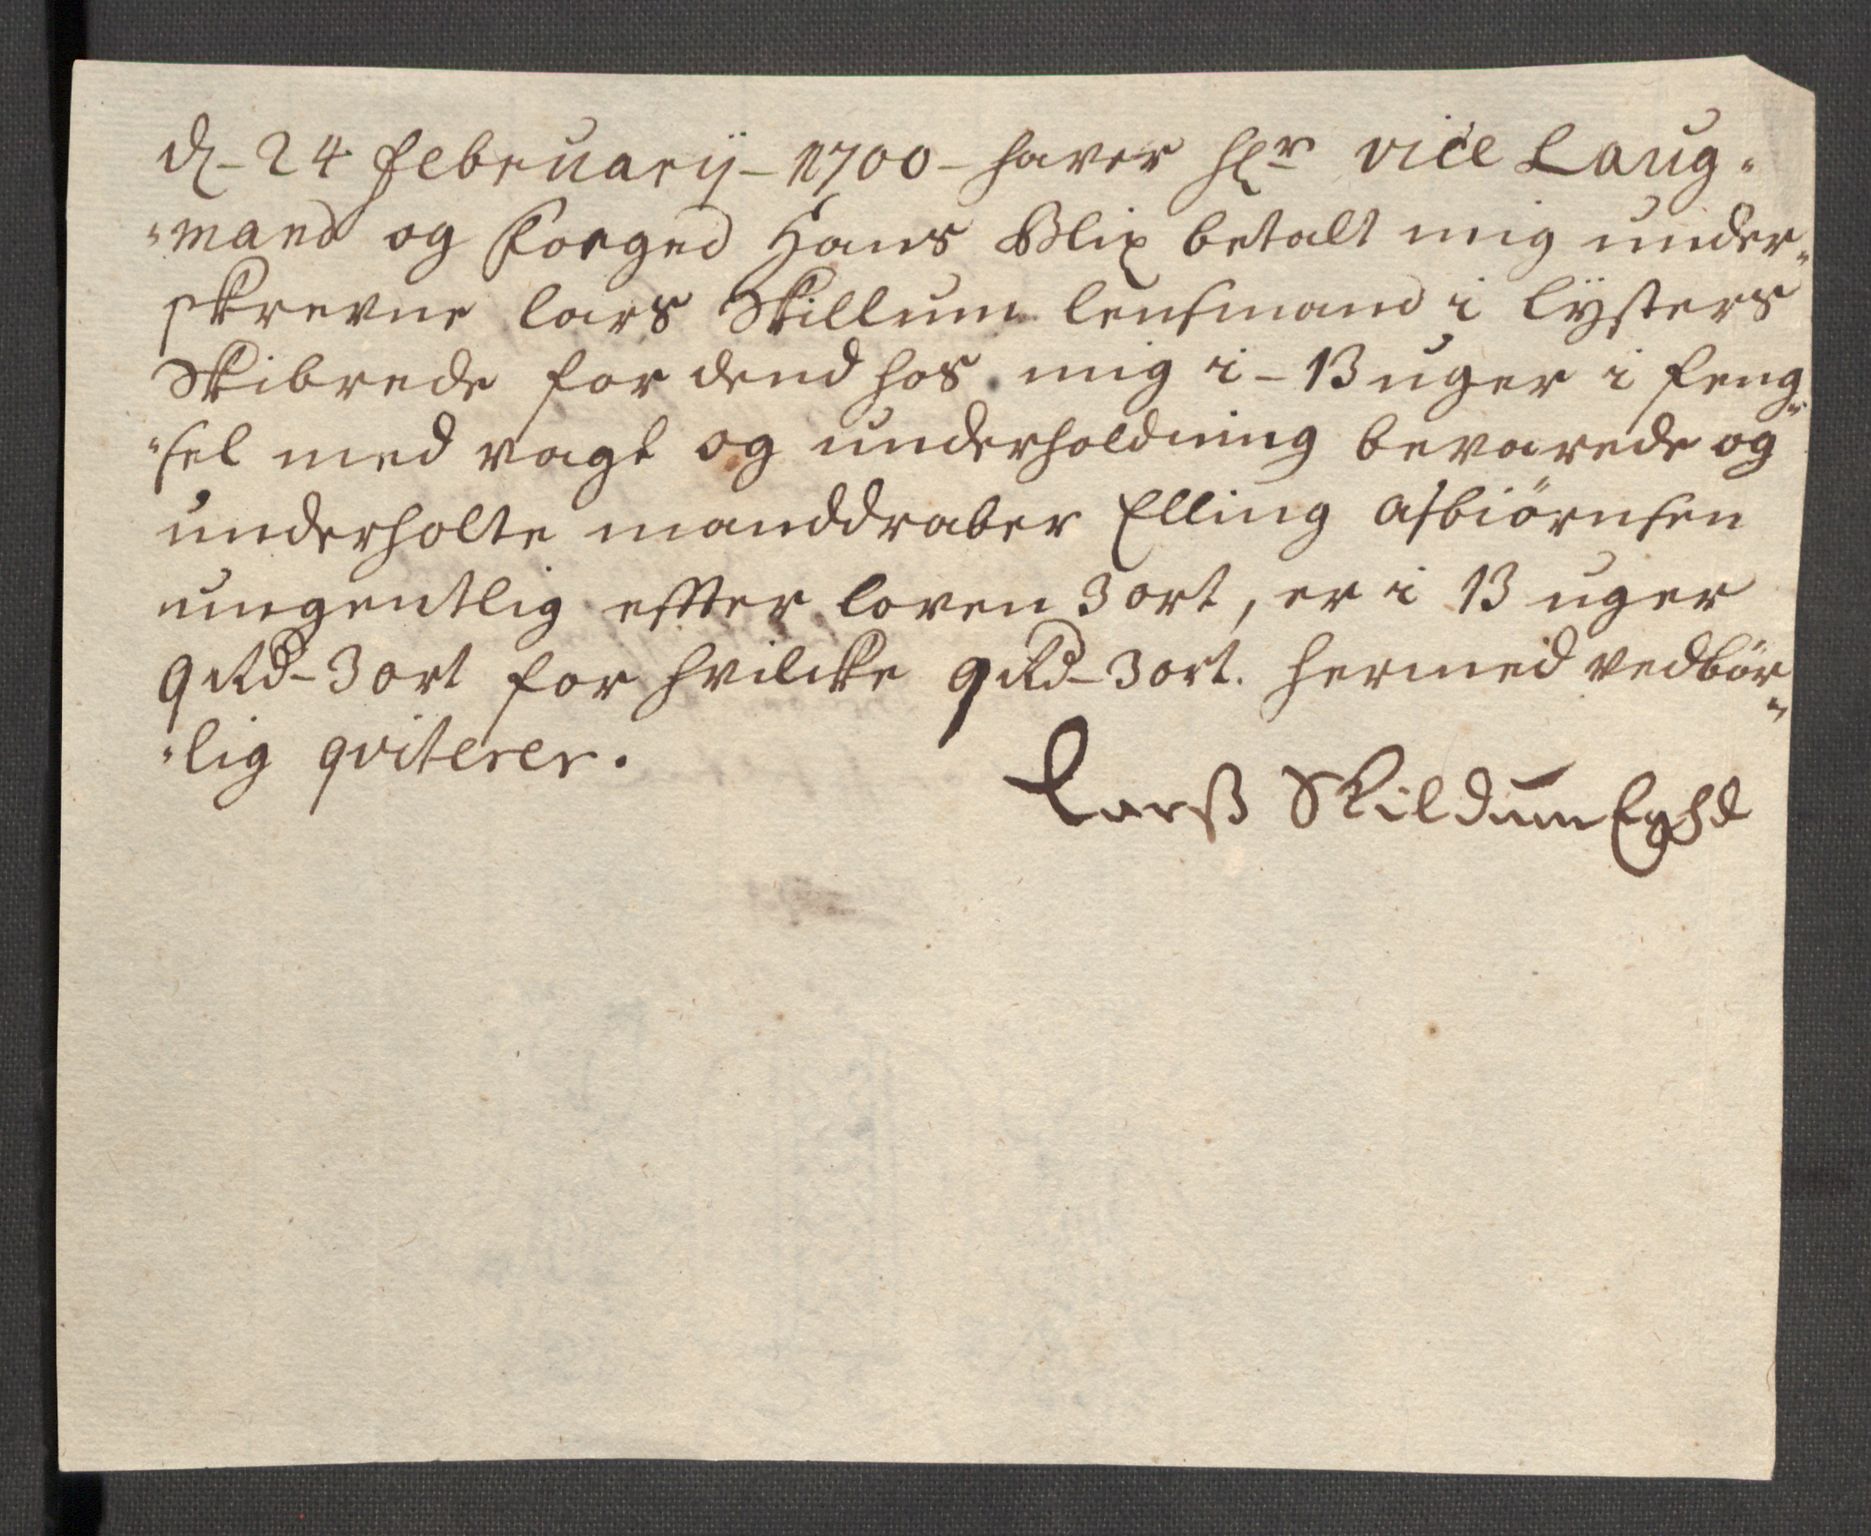 d. 24 februarij 1700 haver hr vice Laug-
mand og Foeged Hans Blix betalt mig under-
skrevne Lars Skillum lensmand i Lÿsters
Skibrede for dend hos mig i 13 uger i feng-
sel med vagt og underholdning bevarede og
underholte manddraber Elling Asbiörnsen
ungentlig effter loven 3 ort, er i 13 uger
9 Rd - 3 ort for hvilcke 9 Rd - 3 ort. hermed vedbör-
lig qviterer.
Larsß Skildum